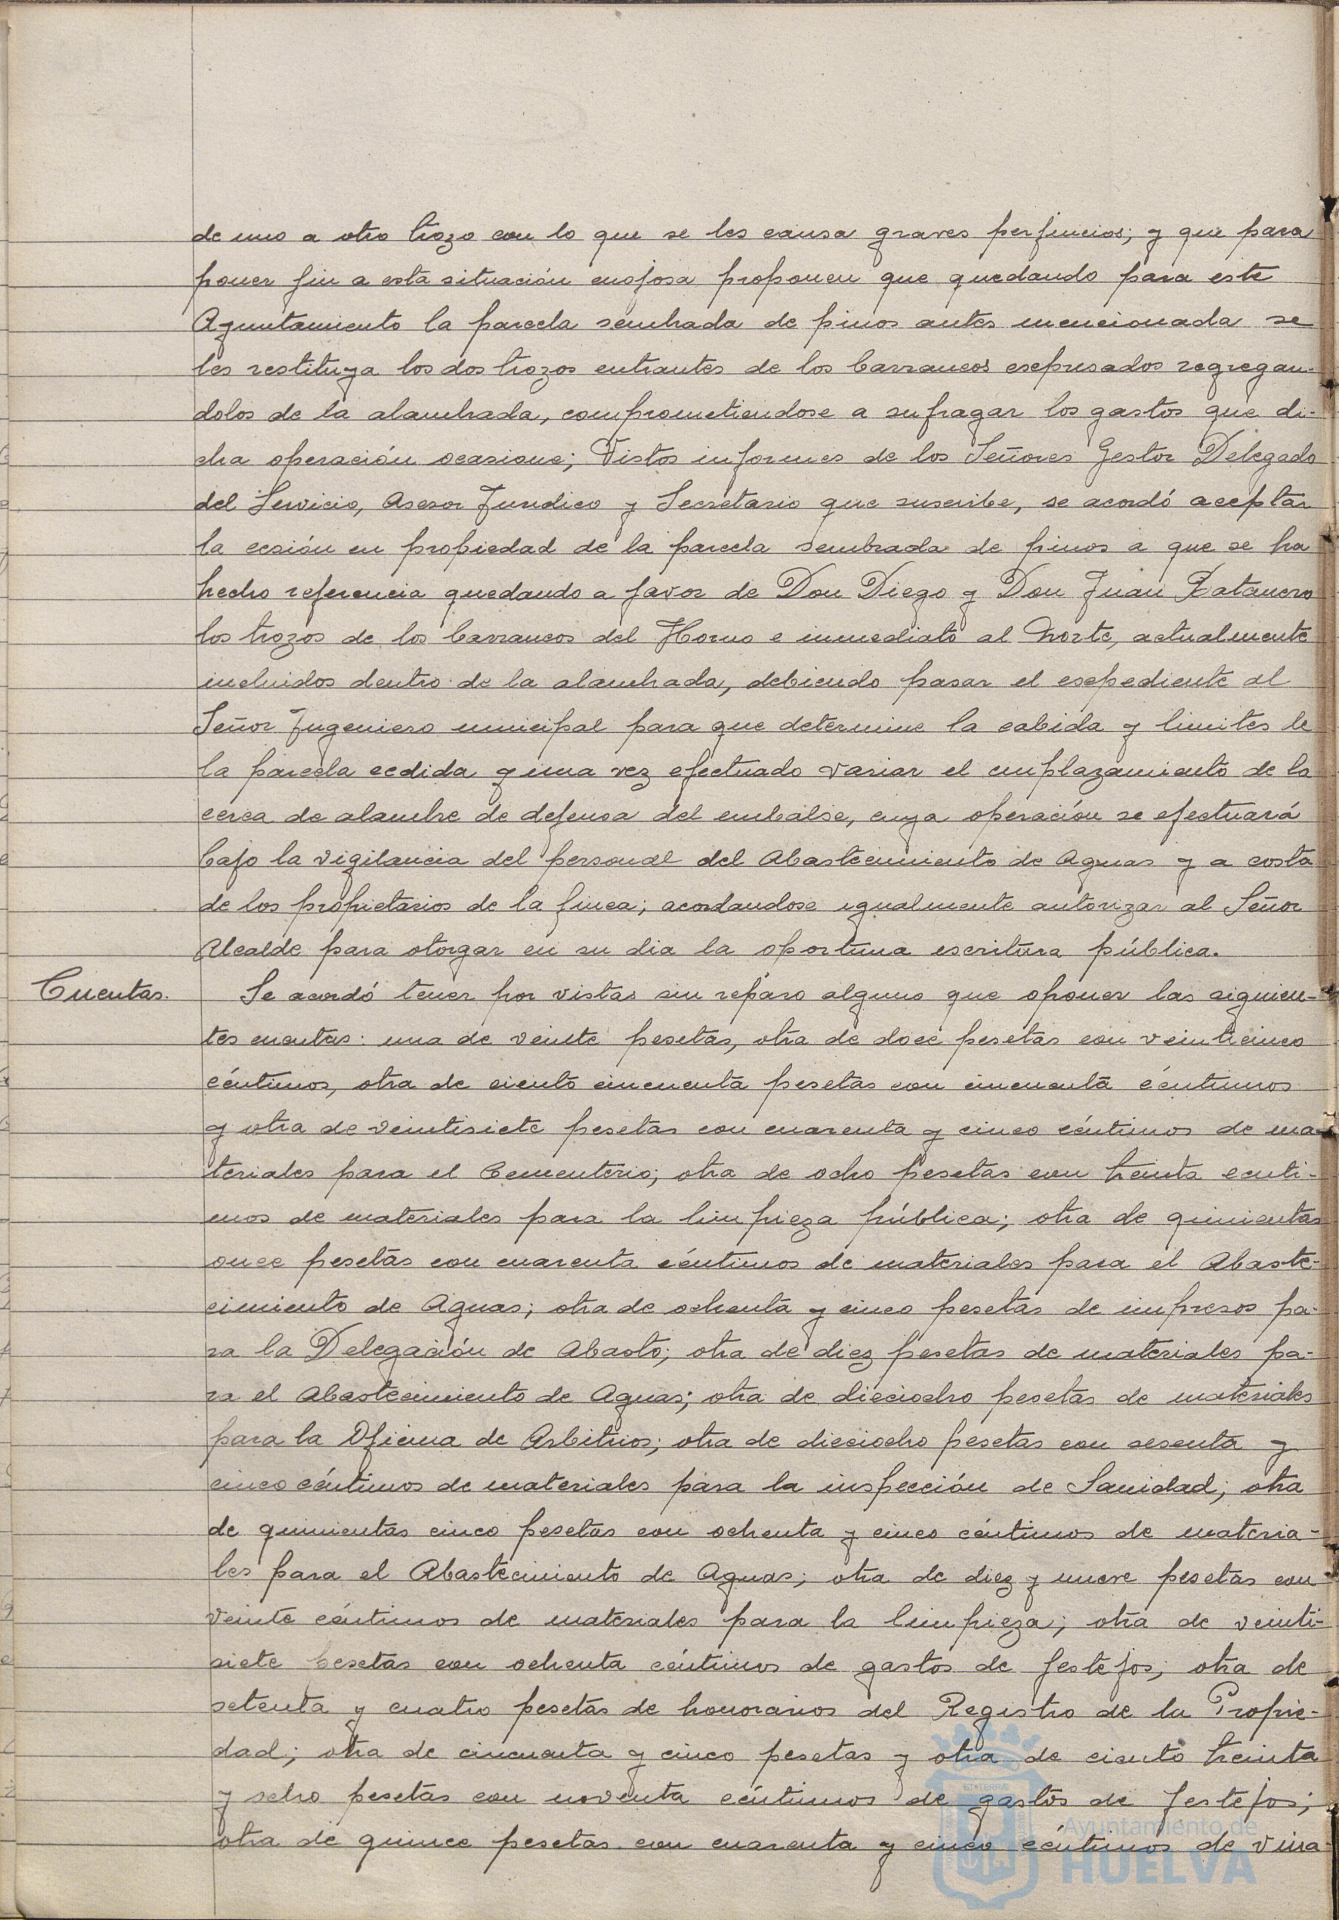 de uno a otro trozo con lo que se les causa graves perjuicios; y que para
poner fin a esta situación enojosa proponen que quedando para este
Ayuntamiento la parcela sembrada de pinos antes mencionada se
les restituya los dos trozos entrantes de los barrancos expresados regregan-
dolos de la alambrada, comprometiendose a sufragar los gastos que di-
cha operación ocasione; Vistos informes de los Señores Gestor Delegado
del Servicio, Asesor Jurídico y Secretario que suscribe, se acordó aceptar
la cesión en propiedad de la parcela sembrada de pinos a que se ha
hecho referencia quedando a favor de Don Diego y Don Juan Batanero
los trozos de los barrancos del Horno e inmediato al Norte, actualmente
incluidos dentro de la alambrada, debiendo pasar el expediente al
Señor Ingeniero municipal para que determine la cabida y limites de
la parcela cedida y una vez efectuado variar el emplazamiento de la
cerca de alambre de defensa del embalse, cuya operación se efectuará
bajo la vigilancia del personal del Abastecimiento de Aguas y a costa
de los propietarios de la finca; acordandose igualmente autorizar al Señor
Alcalde para otorgar en su dia la oportuna escritura pública.
Cuentas. Se acordó tener por vistas sin reparo alguno que oponer las siguien-
tes cuentas: una de veinte pesetas, otra de doce pesetas con veinticinco
céntimos, otra de ciento cincuenta pesetas con cincuenta céntimos
y otra de veintisiete pesetas con cuarenta y cinco céntimos de ma-
teriales para el Cementerio; otra de ocho pesetas con treinta centi-
mos de materiales para la limpieza pública; otra de quinientas
once pesetas con cuarenta céntimos de materiales para el Abaste-
cimiento de Aguas; otra de ochenta y cinco pesetas de impresos pa-
ra la Delegación de Abasto; otra de diez pesetas de materiales pa-
ra el Abastecimiento de Aguas; otra de dieciocho pesetas de materiales
para la Oficina de Arbitrios; otra de dieciocho pesetas con sesenta y
cinco céntimos de materiales para la inspección de Sanidad; otra
de quinientas cinco pesetas con ochenta y cinco céntimos de materia-
les para el Abastecimiento de Aguas; otra de diez y nueve pesetas con
veinte céntimos de materiales para la limpieza; otra de veinti-
siete pesetas con ochenta céntimos de gastos de festejos; otra de
setenta y cuatro pesetas de honorarios del Registro de la Propie-
dad; otra de cincuenta y cinco pesetas y otra de ciento treinta
y ocho pesetas con noventa céntimos de gastos de festejos;
otra de quince pesetas con cuarenta y cinco céntimos de vina-
Ayuntamiento de
HUELVA